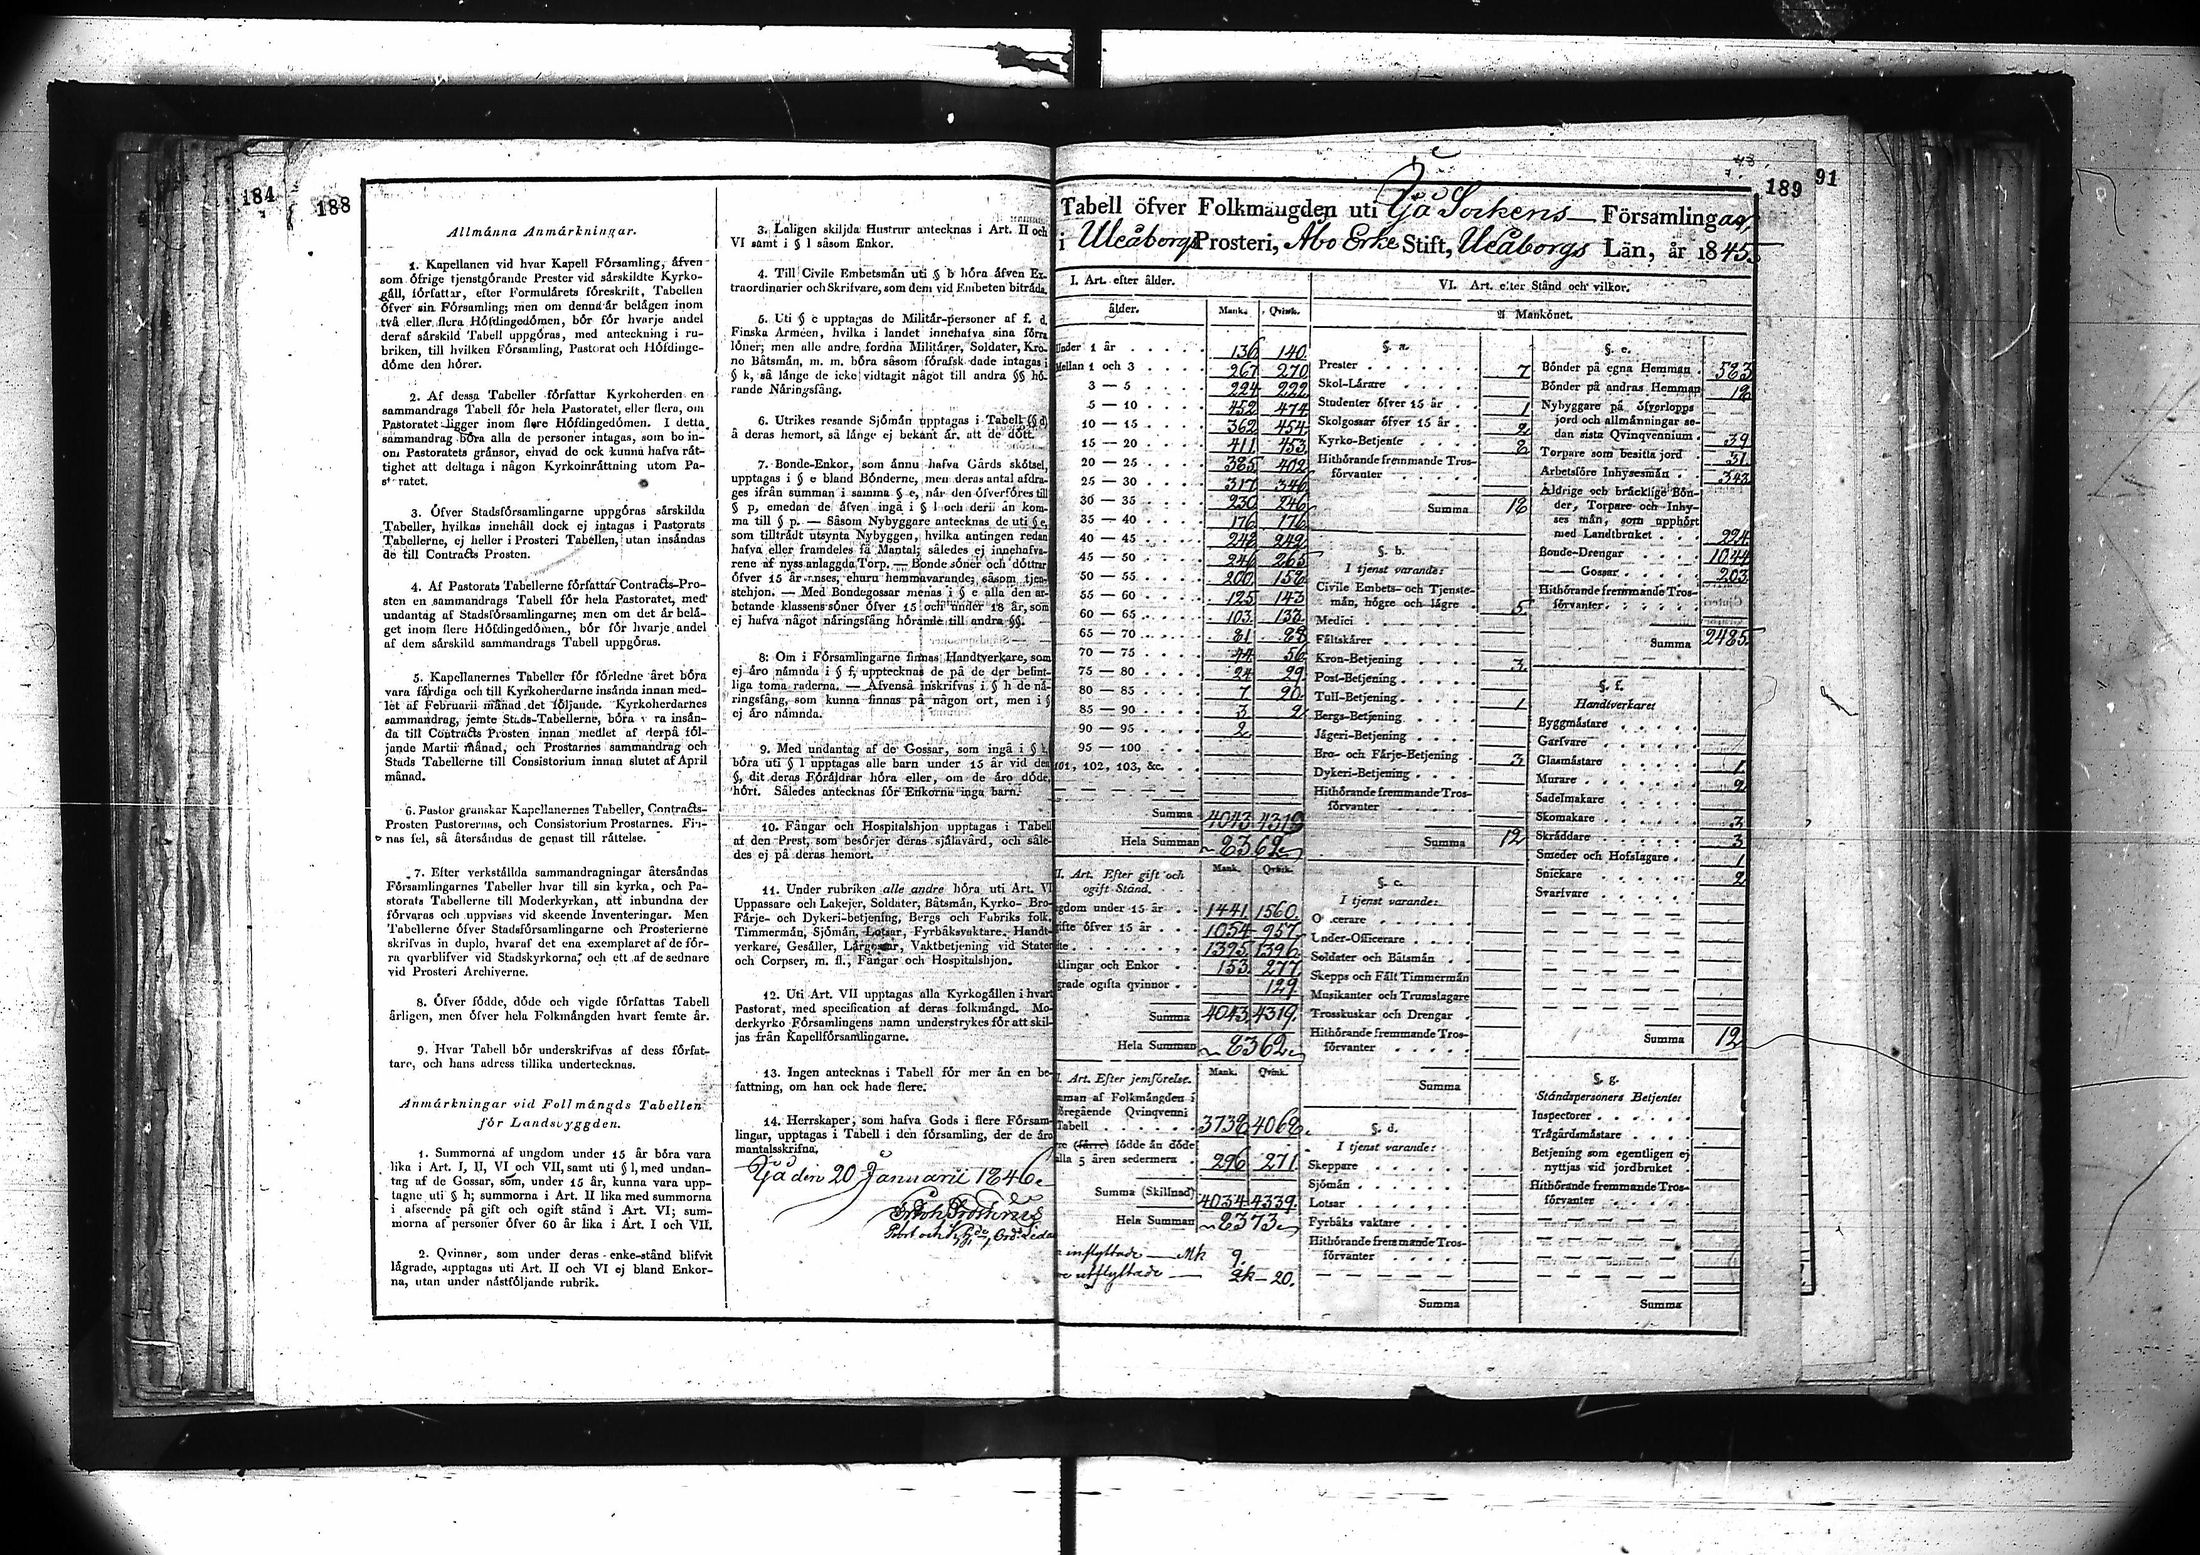 184
188
Allmänna Anmärkningar.
1. Kapellanen vid hvar Kapell Församling, äfven
som öfrige tjenstgörande Prester vid särskildte Kyrko-
gäll, författar, efter Formulärets föreskrift, Tabellen
öfver sin Församling; men om denna är belägen inom
två eller flera Höfdingedömen, bör för hvarje andel
deraf särskild Tabell uppgöras, med anteckning i ru-
briken, till hvilken Församling, Pastorat och Höfdinge-
döme den hörer.
2. Af dessa Tabeller författar Kyrkoherden en
sammandrags Tabell för hela Pastoratet, eller flera, om
Pastoratet ligger inom flere Höfdingedömen. I detta
sammandrag böra alla de personer intagas, som bo in-
om Pastoratets gränsor, ehvad de ock kunna hafva rät-
tighet att deltaga i någon Kyrkoinrättning utom Pa-
storatet.
3. Öfver Stadsförsamlingarne uppgöras särskilda
Tabeller, hvilkas innehåll dock ej intagas i Pastorats
Tabellerne, ej heller i Prosteri Tabellen, utan insändas
de till Contracts Prosten.
4. Af Pastorats Tabellerne författar Contracts-Pro-
sten en sammandrags Tabell för hela Pastoratet, med
undantag af Stadsförsamlingarne; men om det är belä-
get inom flere Höfdingedömen, bör för hvarje andel
af dem särskild sammandrags Tabell uppgöras.
5. Kapellanernes Tabeller för förledne året böra
vara färdiga och till Kyrkoherdarne insända innan med-
let af Februarii månad det följande. Kyrkoherdarnes
sammandrag, jemte Stads-Tabellerne, böra vara insän-
da till Contracts Prosten innan medlet af derpå föl-
jande Martii månad, och Prostarnes sammandrag och
Stads Tabellerne till Consistorium innan slutet af April
månad.
6. Pastor granskar Kapellanernes Tabeller, Contracts-
Prosten Pastorernas, och Consistorium Prostarnes. Fin-
nas fel, så återsändas de genast till rättelse.
7. Efter verkställda sammandragningar återsändas
Församlingarnes Tabeller hvar till sin kyrka, och Pa-
storats Tabellerne till Moderkyrkan, att inbundna der
förvaras och uppvisas vid skeende Inventeringar. Men
Tabellerne öfver Stadsförsamlingarne och Prosterierne
skrifvas in duplo, hvaraf det ena exemplaret af de för-
ra qvarblifver vid Stadskyrkorna, och ett af de sednare
vid Prosteri Archiverne.
8. Öfver födde, döde och vigde författas Tabell
årligen, men öfver hela Folkmängden hvart femte år.
9. Hvar Tabell bör underskrifvas af dess författ-
tare, och hans adress tillika undertecknas.
Anmärkningar vid Folkmängds Tabellen
för Landsbyggden.
1. Summorna af ungdom under 15 år böra vara
lika i Art. I, II, VI och VII, samt uti § l, med undan-
tag af de Gossar, som, under 15 år, kunna vara upp-
tagne uti § h; summorna i Art. II lika med summorna
i afseende på gift och ogift stånd i Art. VI; sum-
morna af personer öfver 60 år lika i Art. I och VII.
2. Qvinner, som under deras enke-stånd blifvit
lägrade, upptagas uti Art. II och VI ej bland Enkor-
na, utan under nästföljande rubrik.
3. Laligen skiljda Hustrur antecknas i Art. II och
VI samt i § l såsom Enkor.
4. Till Civile Embetsmän uti § b höra äfven Ex-
traordinarier och Skrifvare, som dem vid Embeten biträda.
5. Uti § c upptagas de Militär-personer af f. d.
Finska Arméen, hvilka i landet innehafva sina förra
löner; men alle andre fordna Militärer, Soldater, Kro-
no Båtsmän, m. m. böra såsom förafskedade intagas i
§ k, så länge de icke vidtagit något till andra §§ hö-
rande Näringsfång.
6. Utrikes resande Sjömän upptagas i Tabell (§ d)
å deras hemort, så länge ej bekant är, att de dött.
7. Bonde-Enkor, som ännu hafva Gårds skötsel,
upptagas i § e bland Bönderne, men deras antal afdra-
ges ifrån summan i samma § e, när den öfverföres till
§ p, emedan de äfven ingå i § l och derifrån kom-
ma till § p. — Såsom Nybyggare antecknas de uti § e,
som tillträdt utsynta Nybyggen, hvilka antingen redan
hafva eller framdeles få Mantal; således ej innehafva-
rene af nyss anlaggda Torp. — Bonde söner och döttrar
öfver 15 år anses, ehuru hemmavarande, såsom tjen-
stehjon. — Med Bondegossar menas i § e alla den ar-
betande klassens söner öfver 15 och under 18 år, som
ej hafva något näringsfång hörande till andra §§.
8. Om i Församlingarne finnas Handtverkare, som
ej äro nämnda i § f, upptecknas de på de der befint-
liga toma raderna. — Äfvenså inskrifvas i § h de nä-
ringsfång, som kunna finnas på någon ort, men i §
ej äro nämnda.
9. Med undantag af de Gossar, som ingå i § h,
böra uti § l upptagas alle barn under 15 år vid den
§, dit deras Föräldrar höra eller, om de äro döde,
hört. Således antecknas för Enkorna inga barn.
10. Fångar och Hospitalshjon upptagas i Tabell
af den Prest, som besörjer deras själavård, och såle-
des ej på deras hemort.
11. Under rubriken alle andre höra uti Art. VI
Uppassare och Lakejer, Soldater, Båtsmän, Kyrko- Bro-
Färje- och Dykeri-betjening, Bergs och Fabriks folk,
Timmermän, Sjömän, Lotsar, Fyrbåksvaktare, Handt-
verkare, Gesäller, Lärgossar, Vaktbetjening vid Stater
och Corpser, m. fl., Fångar och Hospitalshjon.
12. Uti Art. VII upptagas alla Kyrkogällen i hvart
Pastorat, med specification af deras folkmängd. Mo-
derkyrko Församlingens namn understrykes för att skil-
jas från Kapellförsamlingarne.
13. Ingen antecknas i Tabell för mer än en be-
fattning, om han ock hade flere.
14. Herrskaper, som hafva Gods i flere Försam-
lingar, upptagas i Tabell i den församling, der de äro
mantalsskrifna.
Ijå den 20 Januarii 1846.
189
91
Tabell öfver Folkmängden uti Ijå Sockens Församlingar,
i Uleåborgs Prosteri, Åbo Erke Stift, Uleåborgs Län, år 1845.
I. Art. efter ålder.
ålder. Mank. Qvink.
Under 1 år 136 140
Mellan 1 och 3 267 270
3 — 5 224 222
5 — 10 452 474
10 — 15 362 454
15 — 20 411 453
20 — 25 385 402
25 — 30 317 346
30 — 35 230 246
35 — 40 176 176
40 — 45 248 249
45 — 50 246 265
50 — 55 200 158
55 — 60 125 143
60 — 65 103 133
65 — 70 81 88
70 — 75 44 56
75 — 80 24 29
80 — 85 7 20
85 — 90 3 2
90 — 95 2
95 — 100
101, 102, 103, &c.
Summa 4043 4319
Hela Summan 8362
II. Art. Efter gift och
ogift Stånd. Mank. Qvink.
gdom under 15 år 1441 1560
ifte öfver 15 år 1054 957
te 1395 1396
klingar och Enkor 153 277
grade ogifta qvinnor 129
Summa 4043 4319
Hela Summan 8362
I. Art. Efter jemförelse. Mank. Qvink.
mman af Folkmängden i
föregående Qvinqvenni
Tabell 3738 4068
re (färre) födde än döde
alla 5 åren sedermera 296 271
Summa (Skillnad) 4034 4339
Hela Summan 8373
inflyttade — Mk 9.
utflyttade — Qk — 20.
VI. Art. efter Stånd och vilkor.
Mankönet.
§. a.
Prester 7
Skol-Lärare
Studenter öfver 15 år 1
Skolgossar öfver 15 år 2
Kyrko-Betjente 8
Hithörande fremmande Tros-
förvanter
Summa 18
§. b.
I tjenst varande:
Civile Embets- och Tjenste-
män, högre och lägre 5
Medici
Fältskärer
Kron-Betjening 3
Post-Betjening
Tull-Betjening 1
Bergs-Betjening
Jägeri-Betjening
Bro- och Färje-Betjening 3
Dykeri-Betjening
Hithörande fremmande Tros-
förvanter
Summa 12
§. c.
I tjenst varande:
Officerare
Under-Officerare
Soldater och Båtsmän
Skepps och Fält Timmermän
Musikanter och Trumslagare
Trosskuskar och Drengar
Hithörande fremmande Tros-
förvanter
Summa
§. d.
I tjenst varande:
Skeppare
Sjömän
Lotsar
Fyrbåks vaktare
Hithörande fremmande Tros-
förvanter
Summa
§. e.
Bönder på egna Hemman 583
Bönder på andras Hemman 18
Nybyggare på öfverlopps
jord och allmänningar se-
dan sista Qvinqvennium 39
Torpare som besitta jord 31
Arbetsföre Inhysesmän 343
Äldrige och bräcklige Bön-
der, Torpare och Inhy-
ses män, som upphört
med Landtbruket 224
Bonde-Drengar 1044
— — Gossar 203
Hithörande fremmande Tros-
förvanter
Summa 2485
§. f.
Handtverkare:
Byggmästare
Garfvare
Glasmästare 1
Murare 2
Sadelmakare
Skomakare 3
Skräddare 3
Smeder och Hofslagare 1
Snickare 2
Svarfvare
Summa 12
§. g.
Ståndspersoners Betjente:
Inspectorer
Trägårdsmästare
Betjening som egentligen ej
nyttjas vid jordbruket
Hithörande fremmande Tros-
förvanter
Summa